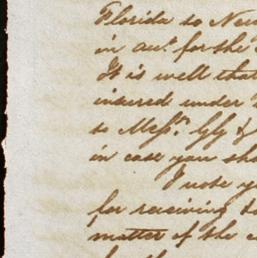 Florida to New
in acct. for the
It is well that
insured under
to Messrs.
in case you sho
I note y
for receiving
matter of the